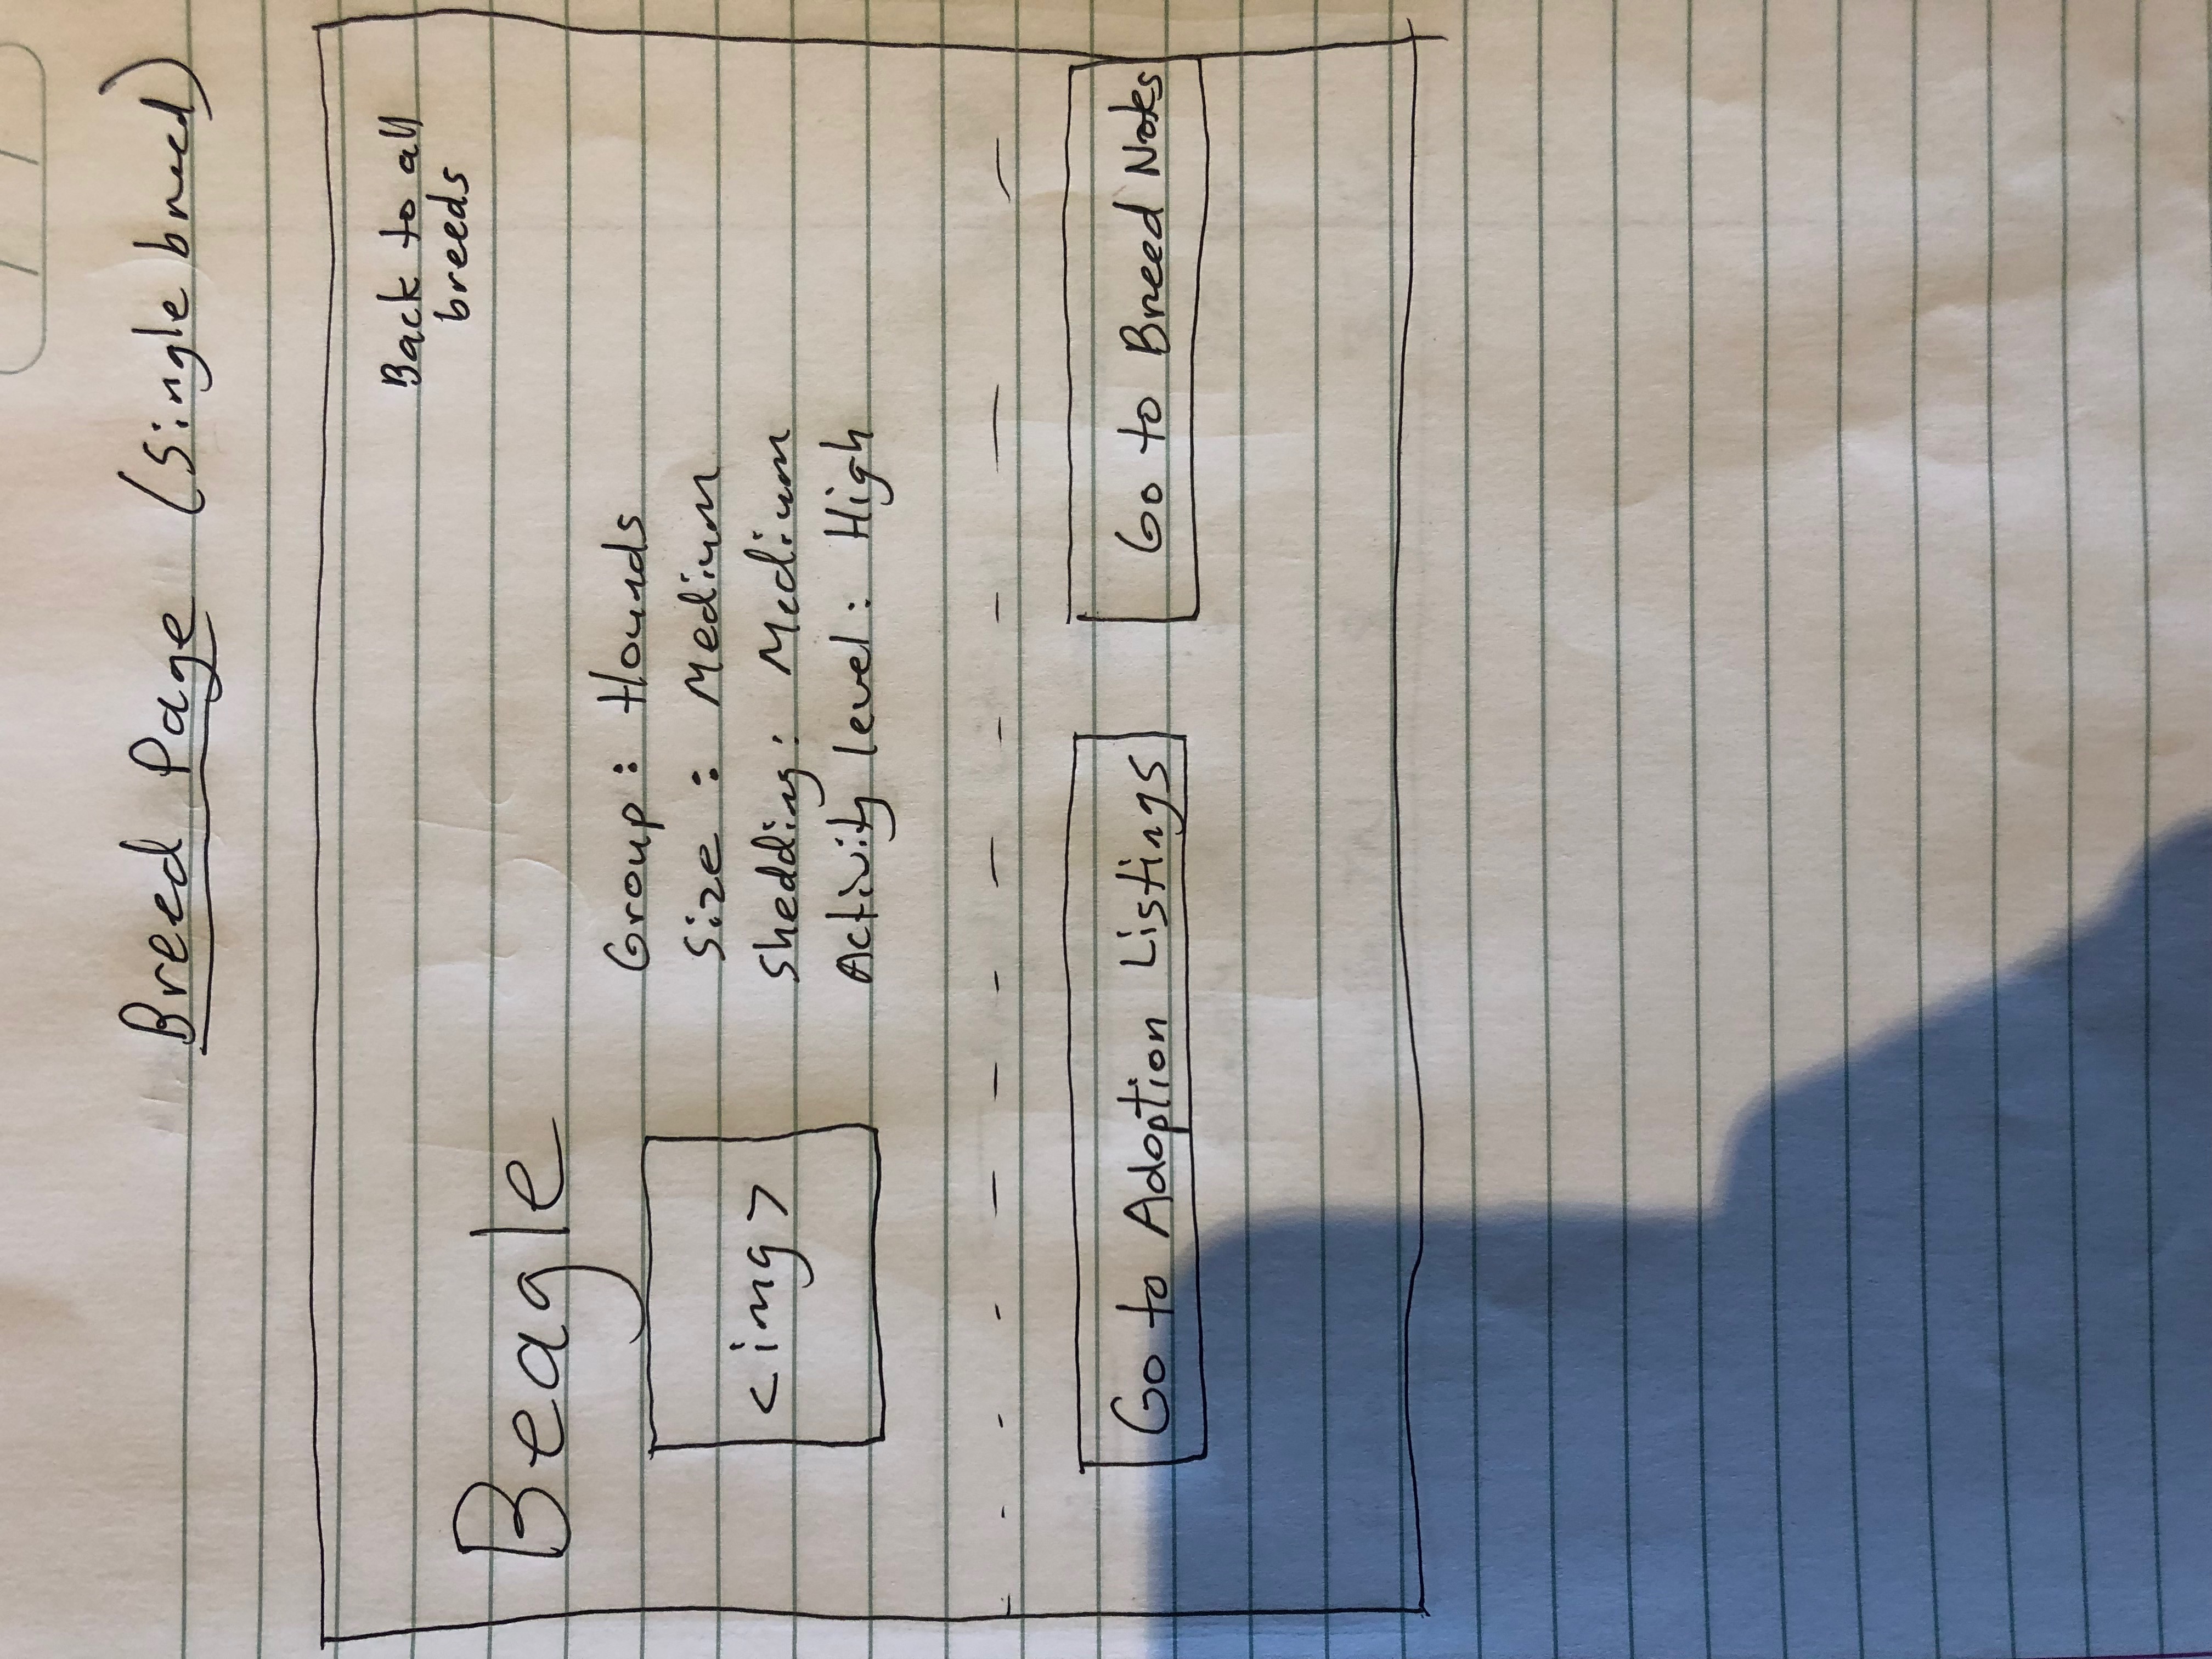 Breed Page (single breed)
Back to all
breeds
Beagle
Group: Hounds
Size: Medium
<img>
Shedding: Medium
Activity level: High
Go to Adoption Listings
Go to Breed Notes